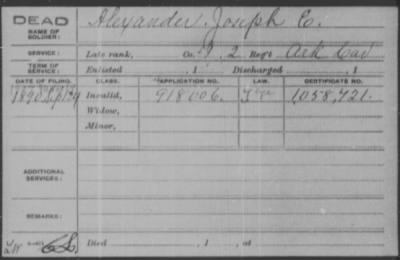 DEAD
NAME OF SOLDIER: Alexander, Joseph C.
SERVICE: Late rank, Co. 2 Reg't Ark Cav
TERM OF SERVICE: Enlisted , 1 Discharged , 1
DATE OF FILING. CLASS. APPLICATION NO. LAW. CERTIFICATE NO.
1890 Invalid, 918006. 1,058,721.
Widow,
Minor,
ADDITIONAL SERVICES:
REMARKS:
Died , 1 , at